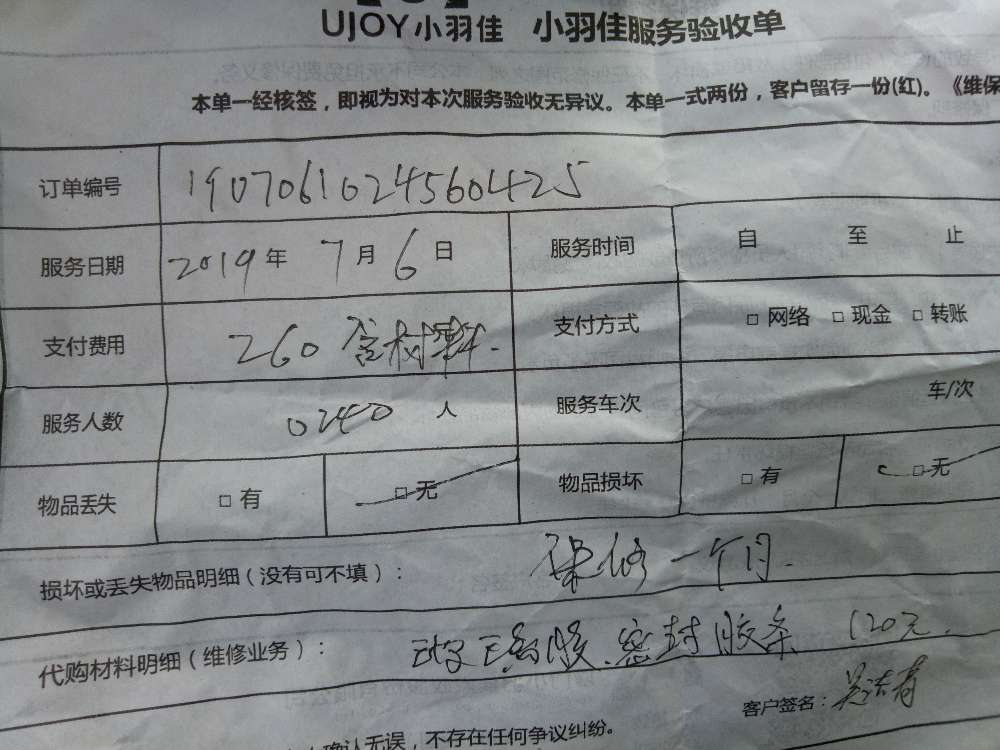 UJOY小羽佳 小羽佳服务验收单
本单一经核签，即视为对本次服务验收无异议。本单一式两份，客户留存一份(红)。《维保
订单编号 1907061024560425
服务日期 2019年 7月 6日 服务时间 自 至 止
支付费用 260含材料. 支付方式 □ 网络 □ 现金 □ 转账
服务人数 0240 人 服务车次 车/次
物品丢失 □ 有 □ 无 物品损坏 □ 有 □ 无
损坏或丢失物品明细（没有可不填）： 保修一个月.
代购材料明细（维修业务）： 胶、密封胶条 120元.
客户签名：
确认无误，不存在任何争议纠纷。